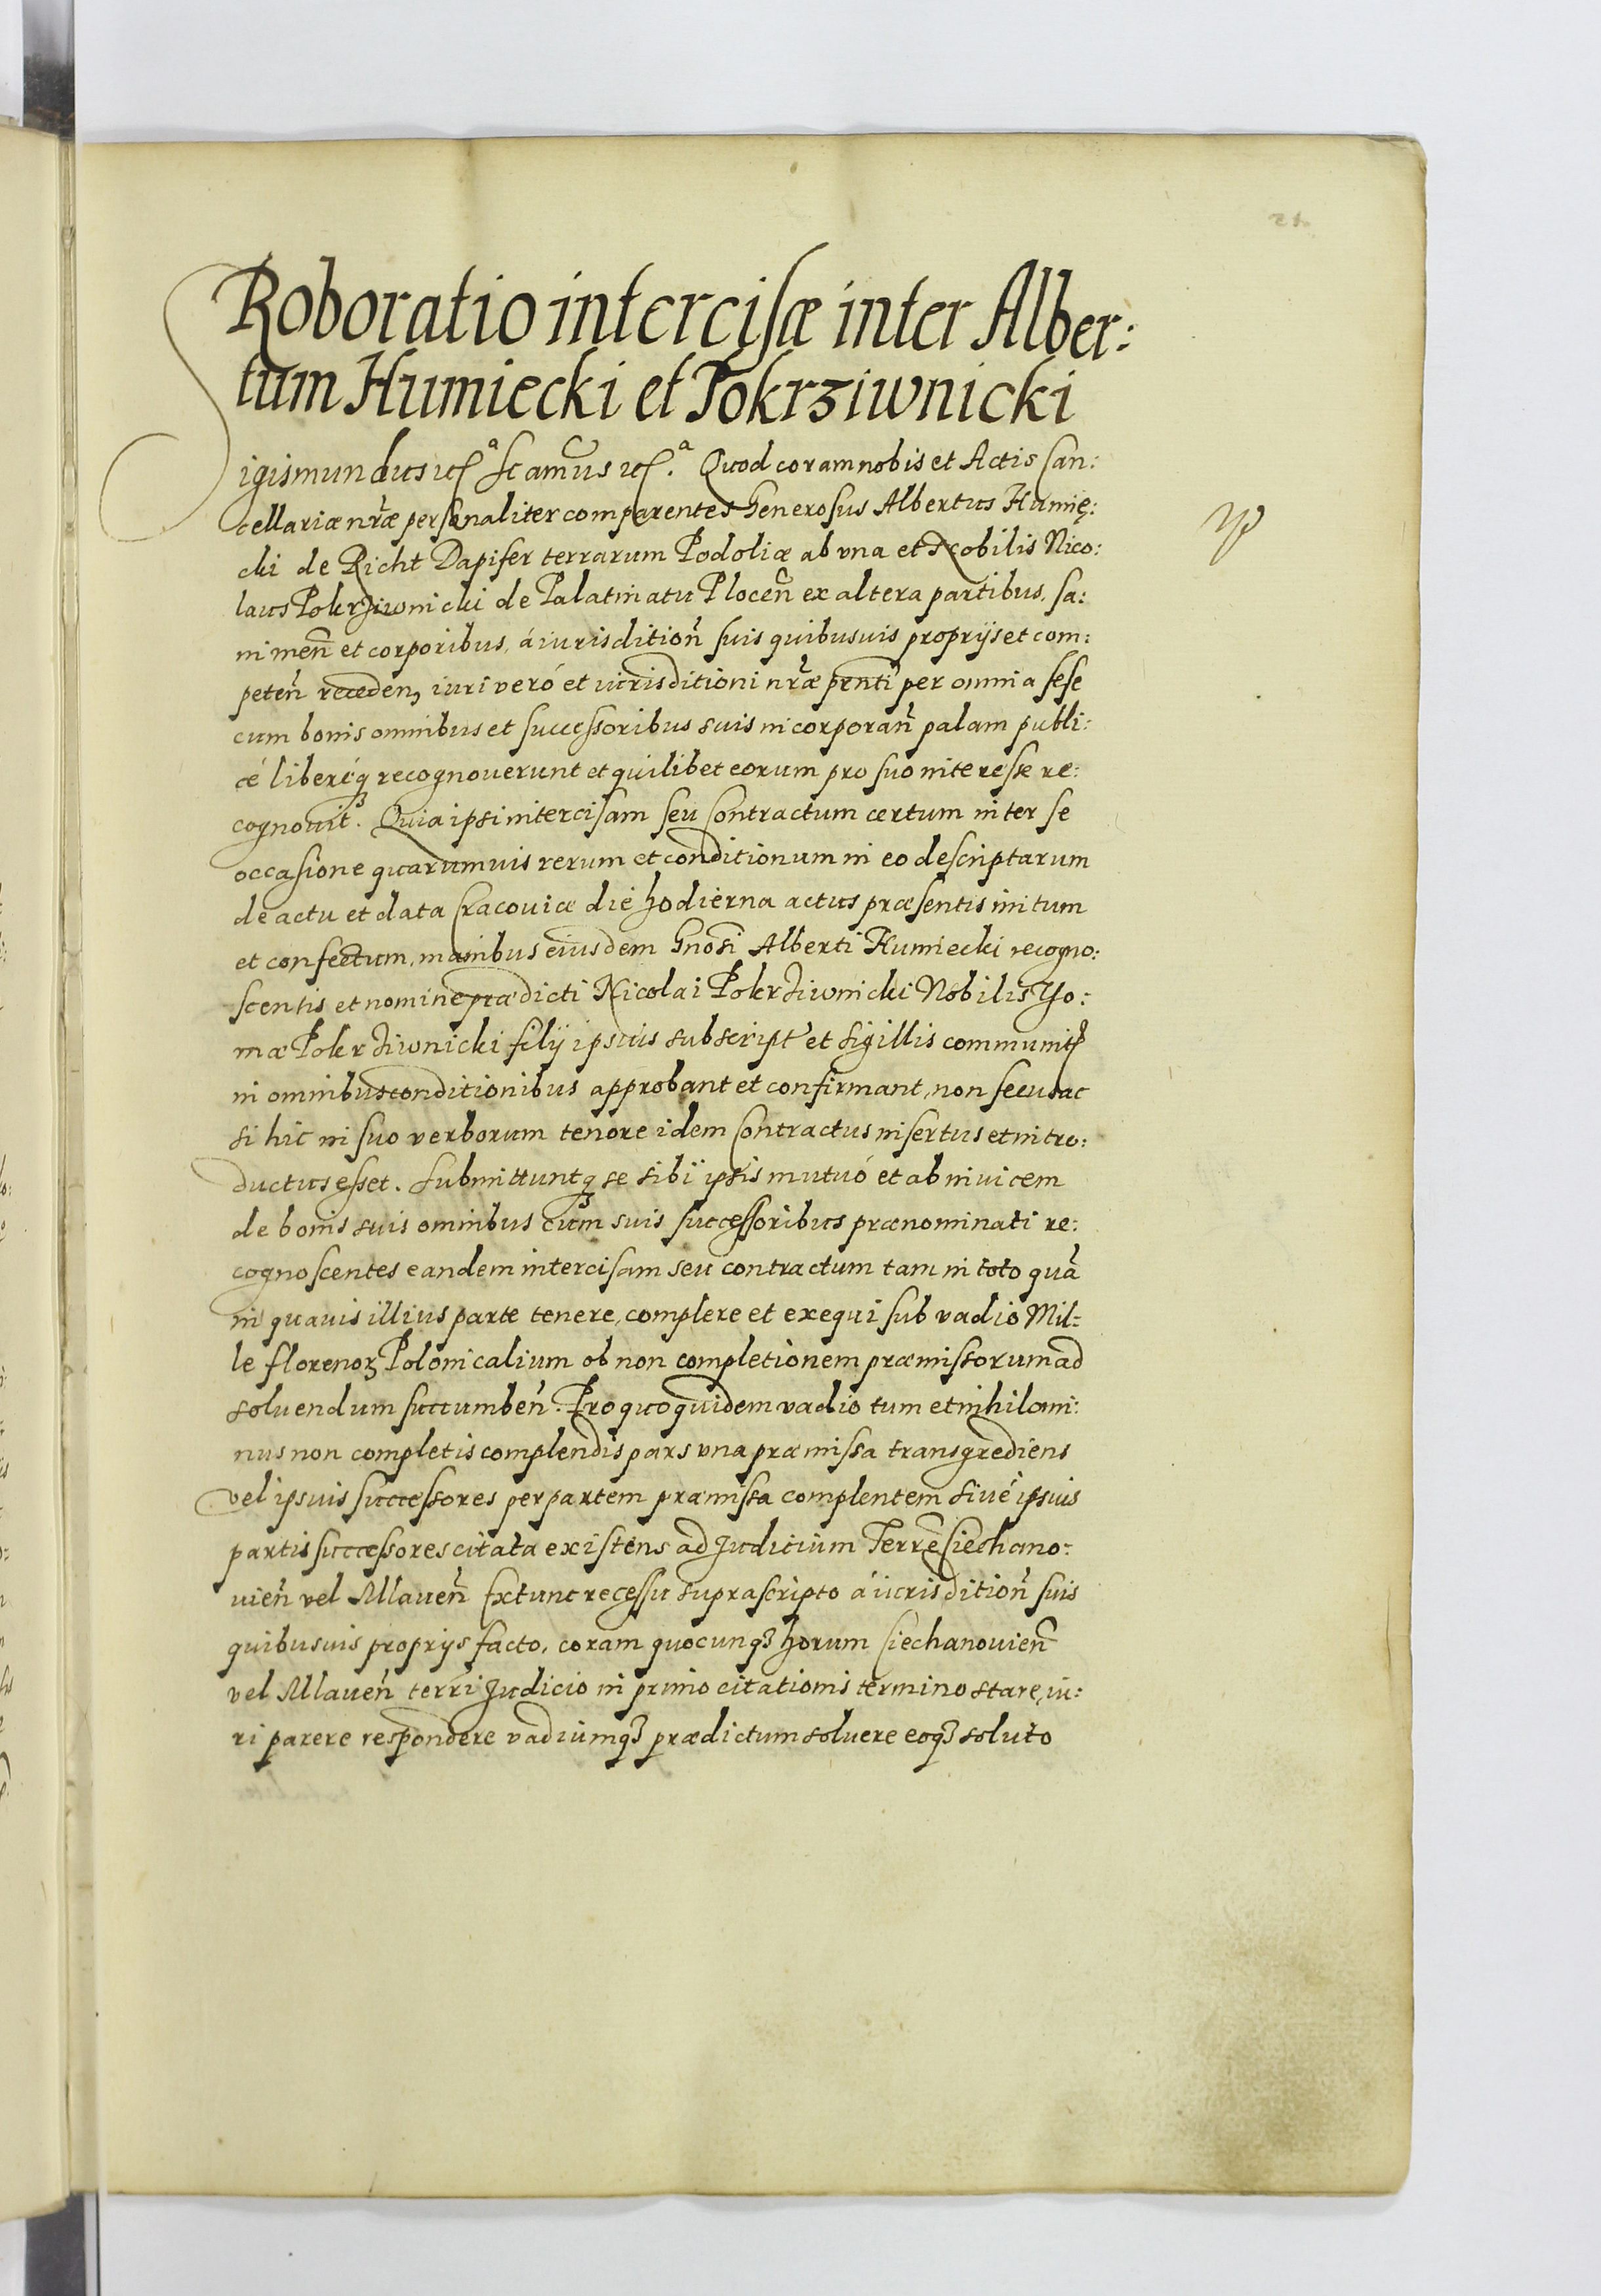 21
Roboratio intercisæ inter Alber:
tum Humiecki et Pokrziwnicki
Sigismundus etc.ª Quod coram nobis et Actis Can:
cellariæ nr̃æ personaliter comparentes Generosus Albertus Humię:
cki de Richt Dapifer terrarum Podoliæ ab vna et Nobilis Nico:
laus Pokrziwnicki de Palatinatu Plocen̄ ex altera partibus, sa:
ni men̄ et corporibus, á iurisdition̄ suis quibusuis proprijs et com:
peten̄ receden, iuri veró et iurisditioni nr̃æ pñti per omnia sese
cum bonis omnibus et successoribus suis incorporan̄ palam publi:
cé liberéq₃ recognouerunt et quilibet eorum pro suo interesse re:
cognouit. Quia ipsi intercisam seu Contractum certum inter se
occasione quarumuis rerum et conditionum in eo descriptarum
de actu et data Cracouiæ die hodierna actus præsentis initum
et confectum, manibus eiusdem Gnosi Alberti Humiecki recogno:
scentis et nomine prædicti Nicolai Pokrziwnicki Nobilis Tho:
mæ Pokrziwnicki filij ipsius subscript et sigillis communit
in omnibus conditionibus approbant et confirmant, non secus ac
si hic in suo verborum tenore idem Contractus insertus et intro:
ductus esset. Submittuntq₃ se sibi ipsis mutuó et ab inuicem
de bonis suis omnibus cum suis successoribus prænominati re:
cognoscentes eandem intercisam seu contractum tam in toto quā
in quauis illius parte tenere, complere et exequi sub vadio Mil=
le florenoꝝ Polonicalium ob non completionem præmissorum ad
soluendum succumben̄. Pro quo quidem vadio tum et nihilomi:
nus non completis complendis pars vna præmissa transgrediens
vel ipsius successores per partem præmissa complentem siué ipsius
partis successores citata existens ad Judicium Terrē Ciechano:
uien̄ vel Mlauen̄ Extunc recessu suprascripto á iurisdition̄ suis
quibusuis proprijs facto, coram quocunq₃ horum Ciechanouien̄
vel Mlauen̄ terrī Judicio in primo citationis termino stare, iu:
ri parere respondere vadiumq₃ prædictum soluere eoq₃ soluto